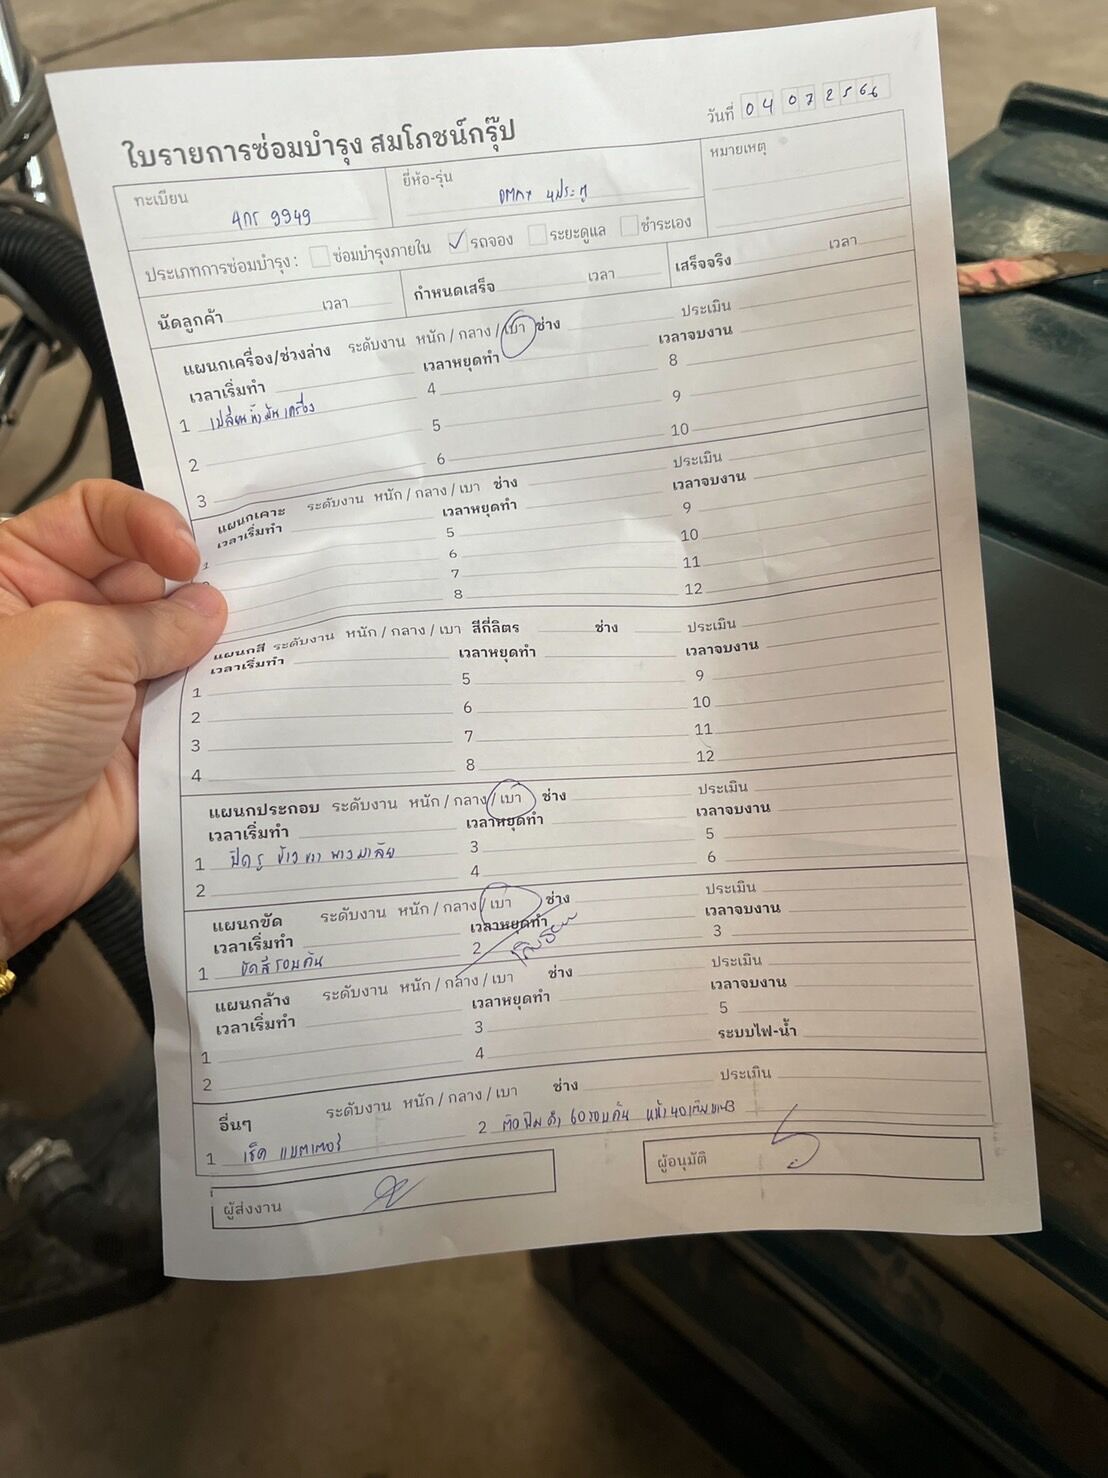 ใบรายการซ่อมบำรุง สมโภชน์กรุ๊ป
วันที่ 04 07 2566
ทะเบียน
ยี่ห้อ-รุ่น DMAX 4ประตู
หมายเหตุ
ประเภทการซ่อมบำรุง : ซ่อมบำรุงภายใน ✓ รถจอง ระยะดูแล ชำระเอง
นัดลูกค้า เวลา กำหนดเสร็จ เวลา เสร็จจริง เวลา
แผนกเครื่อง/ช่วงล่าง ระดับงาน หนัก / กลาง / เบา ช่าง ประเมิน
เวลาเริ่มทำ เวลาหยุดทำ เวลาจบงาน
1 เปลี่ยนน้ำมันเครื่อง 4 8
2 5 9
3 6 10
แผนกเคาะ ระดับงาน หนัก / กลาง / เบา ช่าง ประเมิน
เวลาเริ่มทำ เวลาหยุดทำ เวลาจบงาน
1 5 9
6 10
7 11
8 12
แผนกสี ระดับงาน หนัก / กลาง / เบา สีกี่ลิตร ช่าง ประเมิน
เวลาเริ่มทำ เวลาหยุดทำ เวลาจบงาน
1 5 9
2 6 10
3 7 11
4 8 12
แผนกประกอบ ระดับงาน หนัก / กลาง / เบา ช่าง ประเมิน
เวลาเริ่มทำ เวลาหยุดทำ เวลาจบงาน
1 ปิดรู ข้าง พวงมาลัย 3 5
2 4 6
แผนกขัด ระดับงาน หนัก / กลาง / เบา ช่าง ประเมิน
เวลาเริ่มทำ เวลาหยุดทำ เวลาจบงาน
1 ขัดสีรอบคัน 2 3
แผนกล้าง ระดับงาน หนัก / กลาง / เบา ช่าง ประเมิน
เวลาเริ่มทำ เวลาหยุดทำ เวลาจบงาน
1 3 5
2 4 ระบบไฟ-น้ำ
อื่นๆ ระดับงาน หนัก / กลาง / เบา ช่าง ประเมิน
1 เช็ค แบตเตอรี่ 2 ติดฟิมดำ 60รอบคัน หน้า40เต็มบาน
ผู้ส่งงาน
ผู้อนุมัติ